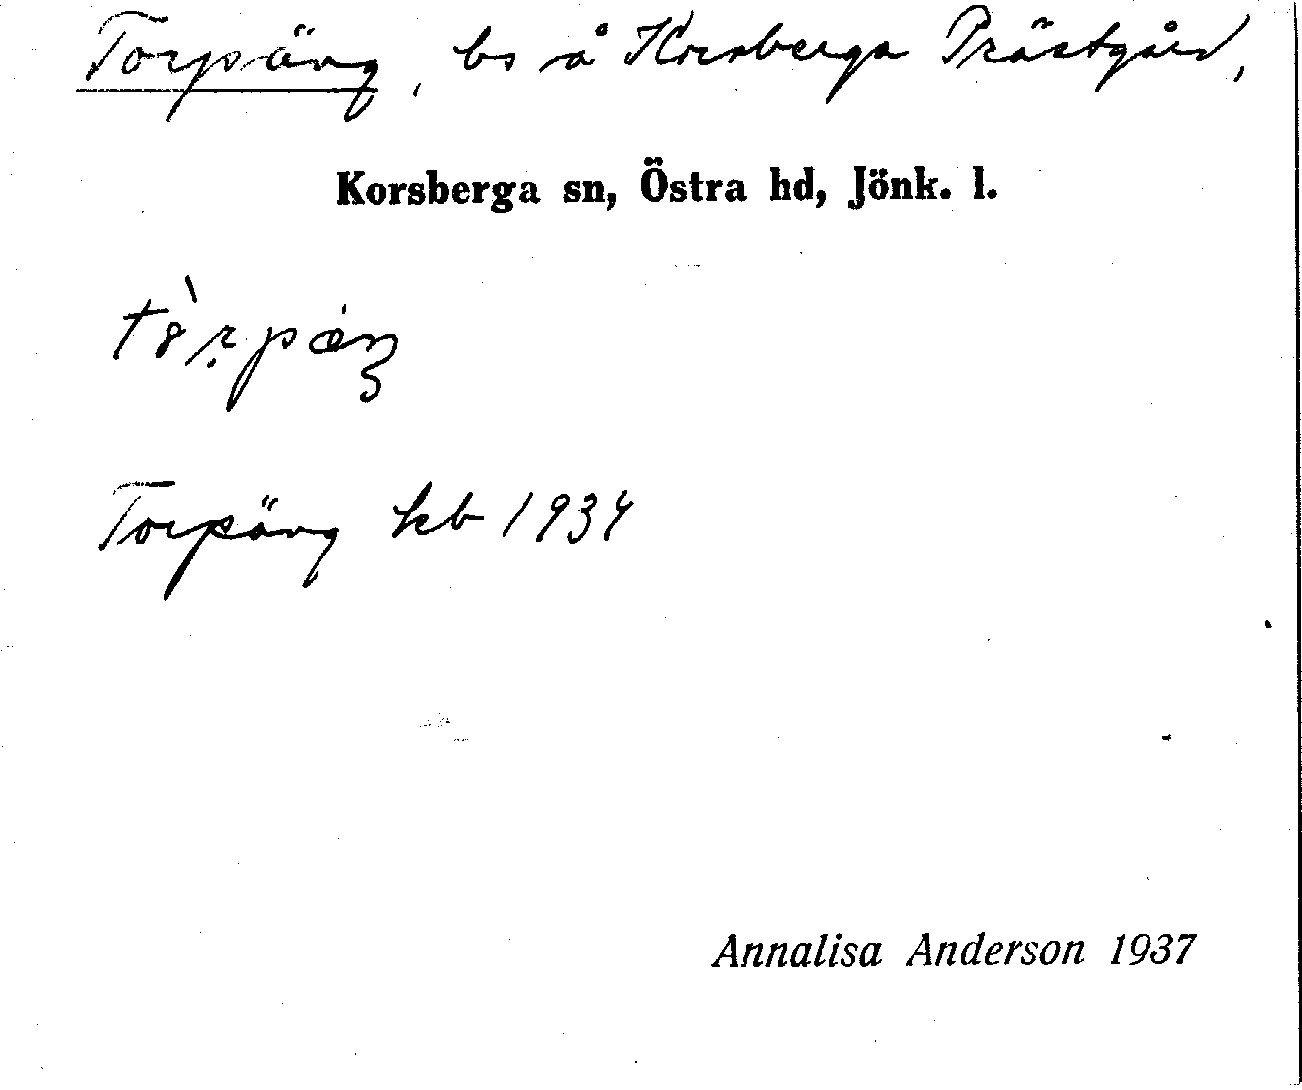 Torpäng, bs å Korsberga Prästgård,
Korsberga sn, Östra hd, Jönk. l.
Torpäng kb 1934
Annalisa Anderson 1937